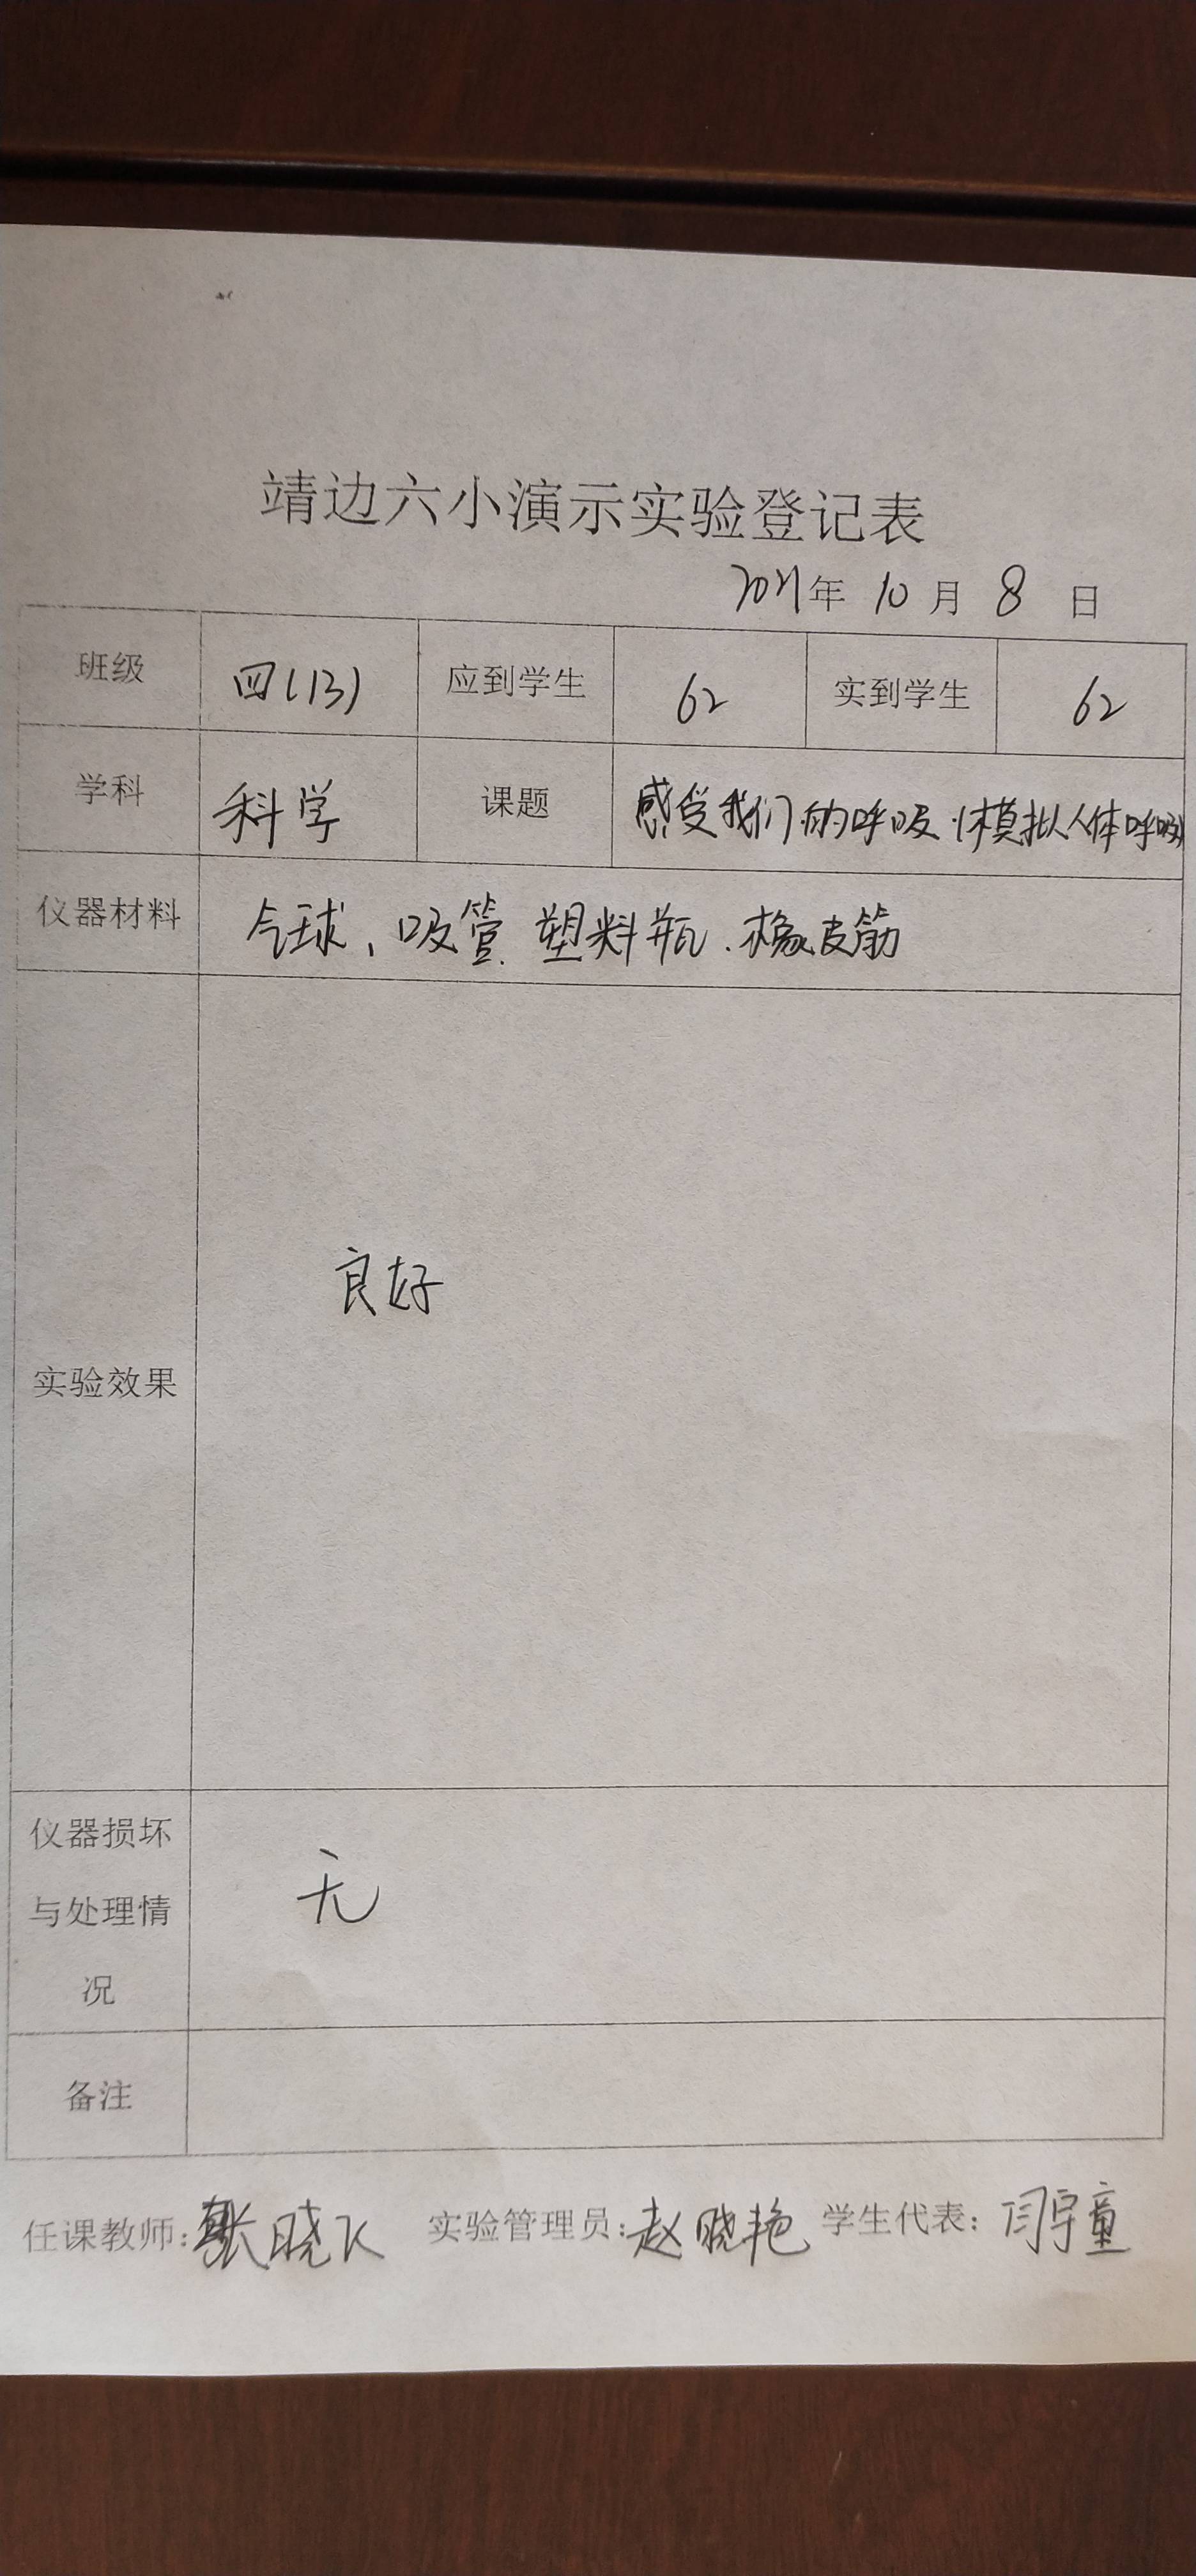 靖边六小演示实验登记表
2021年 10月 8 日
班级 四(13) 应到学生 62 实到学生 62
学科 科学 课题 感受我们的呼吸(模拟人体呼吸)
仪器材料 气球、吸管.塑料瓶.橡皮筋
实验效果 良好
仪器损坏
与处理情
况
无
备注
任课教师:张晓飞 实验管理员:赵晓艳 学生代表:闫宇童